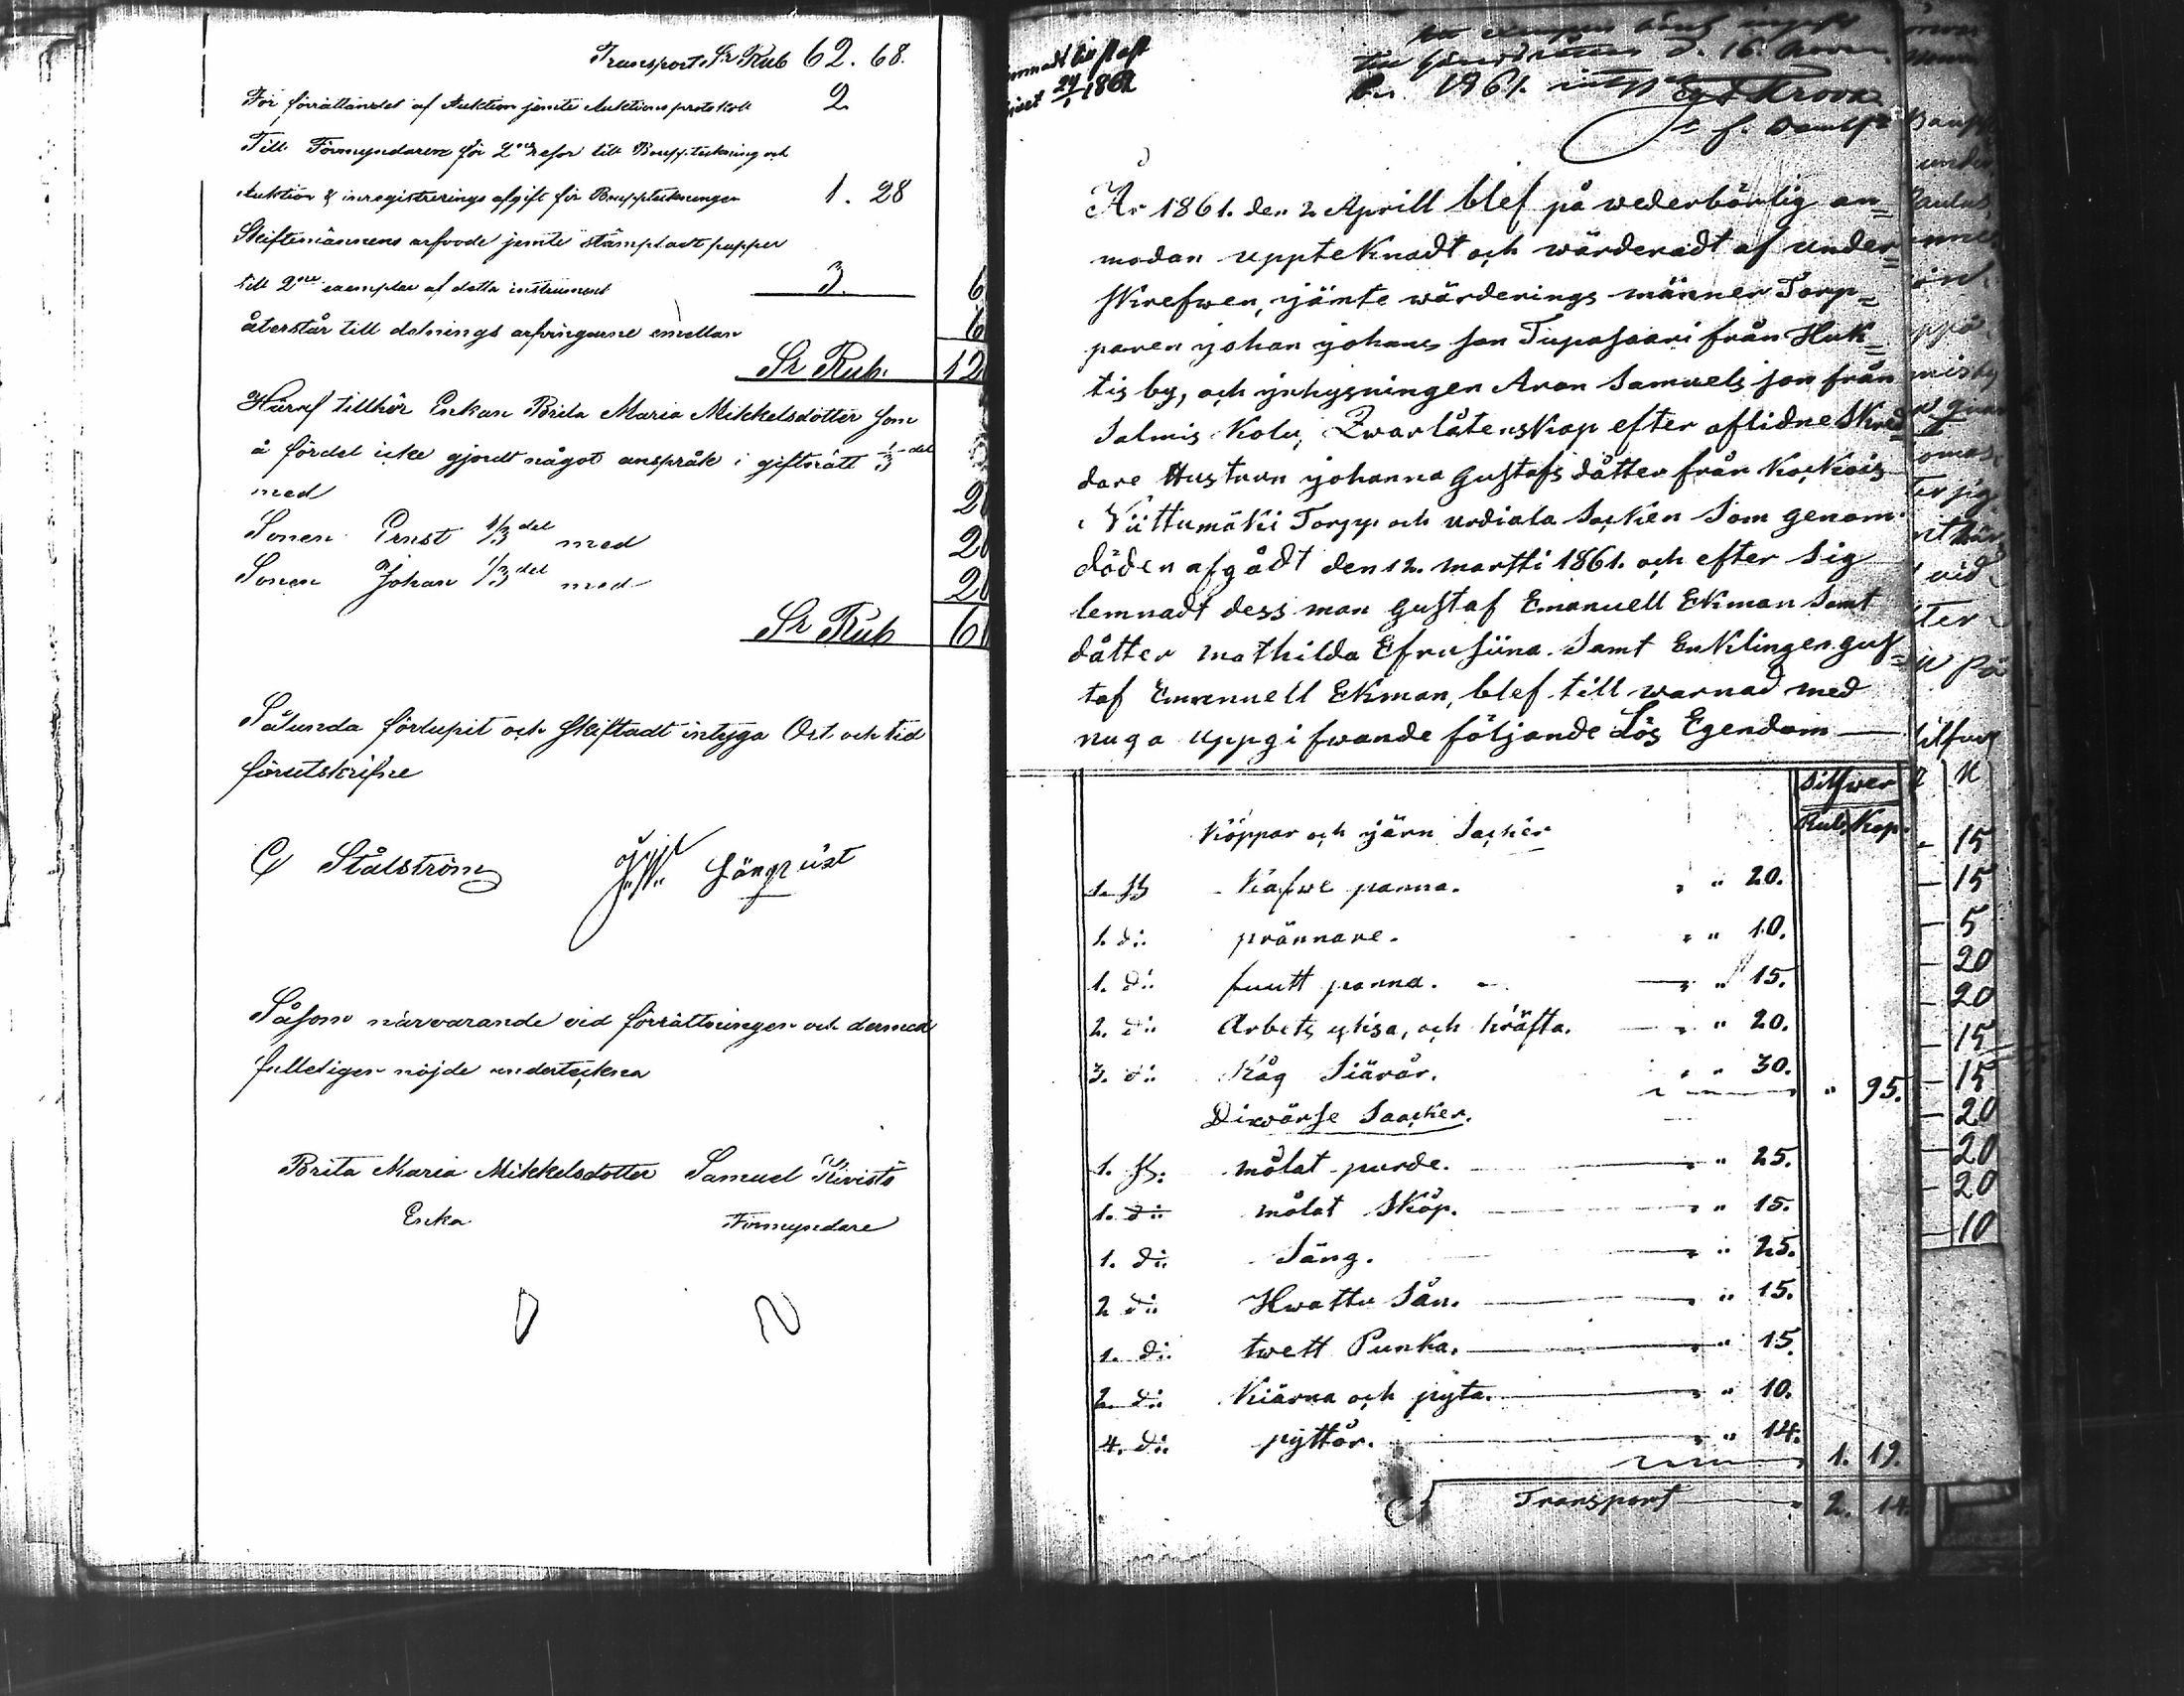 Transport Sr Rub 62. 68.
För förrättandet af Auktion jemte Auktions protokoll 2
Till Förmyndaren för 2ne resor till Bouppteckning och
Auktion & inregistrerings afgift för Bouppteckningen 1. 28
Skiftesmännens arfvode jemte stämpladt papper
till 2ne exemplar af detta instrument 3. 6
återstår till delnings arfvingarne emellan 6
Sr Rub. 12
Häraf tillhör Enkan Brita Maria Mikkelsdotter som
å fördel icke gjordt något anspråk i giftorätt 1/3 del
med 2
Sonen Ernst 1/3 del med 2
Sonen Johan 1/3 del med 2
Sr Rub 6
Sålunda förelupit och skiftadt intyga Ort och tid
förutskrifne
C Stålström Lönqvist
Såsom närvarande vid förrättningen och dermed
fulleligen nöjde underteckna
Brita Maria Mikkelsdotter Samuel Kivistö
Enka Förmyndare
24/1 1862
d. 16.
1861.
År 1861. den 2 Aprill blef på wederbörlig an=
modan uppteknadt och wärderadt af under=
skrefwen, jämte wärderings männer Torp=
paren johan johans son Tupasaari från Huk=
tis by, och ynhysningen Aron Samuels son från
Salmis Kolu, Qwarlåtenskap efter aflidne Skred
dare Hustrun johanna gustafs dåtter från Kockois
Niittumäki Torpp och urdiala Socken Som genom
döden afgådt den 12. martti 1861. och efter Sig
lemnadt dess man gustaf Emanuell Ekman Samt
dåtter mathilda Efrusiina. Samt Enklingen gus=
taf Emanuell Ekman, blef till warnad med
nuga uppgifwande följande Lös Egendom
Silfwer
Rub. Kop.
Köppar och järn Sacker
1. st Kafwe panna. " 20.
1. d:o prännare. " 10.
1. d:o fuutt panna. " 15.
2. d:o Arbets yhsa, och hräfta. " 20.
3. d:o Råg Siäror. " 30.
" 95.
Diwärse Saacker.
1. st. målat purde. " 25.
1. d:o målat Skåp. " 15.
1. d:o Säng. " 25.
2 d:o Hwattu Sån. " 15.
1. d:o twett Punka. " 15.
2 d:o Kiärna och pyta. " 10.
4. d:o pyttor. " 14.
1. 19.
Transport 2. 14.
15
15
5
20
20
15
15
20
20
20
10